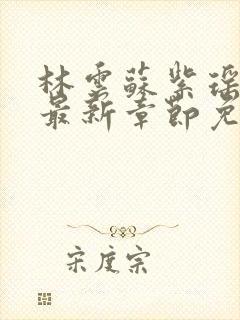 林雲蘇紫瑶
最新章節免
宋度宗